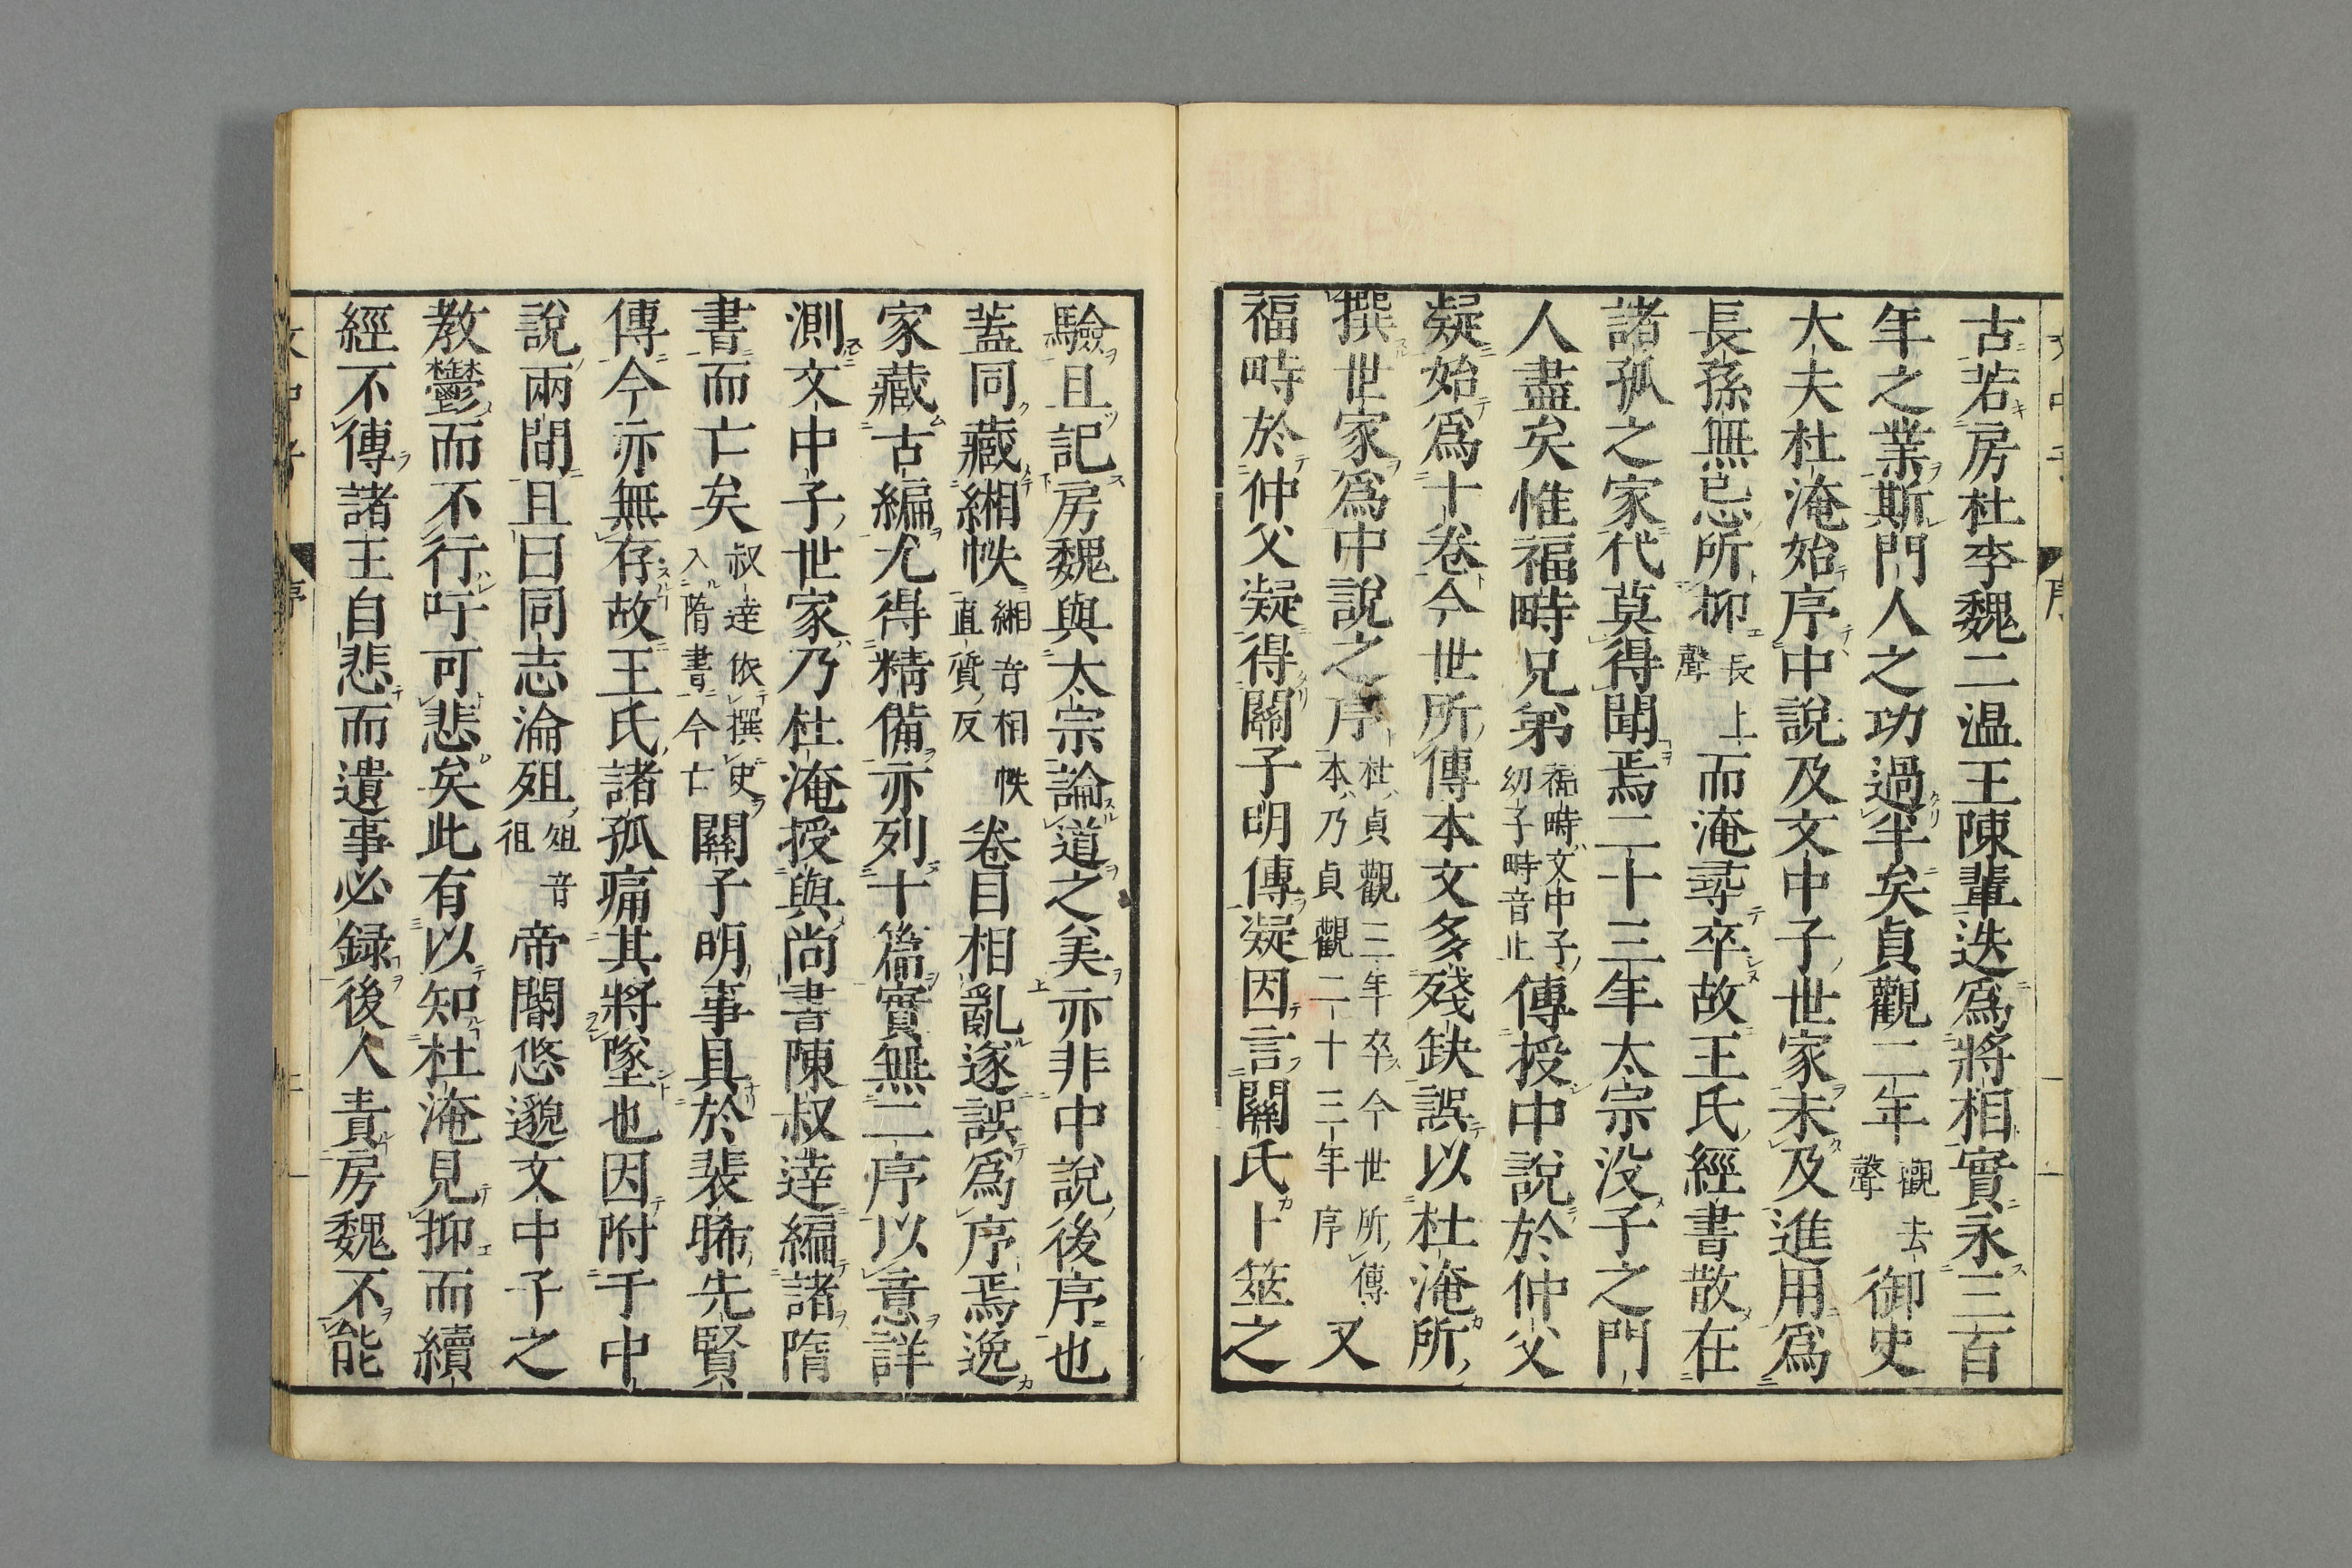 古若房杜李魏二温王陳輩迭爲將相實永三百
年之業斯門人之功過半矣貞觀二年觀去聲御史
大夫杜淹始序中說及文中子世家未及進用爲
長孫無忌所抑長上聲而淹尋卒故王氏經書散在
諸孤之家代莫得聞焉二十三年太宗没子之門
人盡矣惟福畤兄弟福畤文中子幼子畤音止傳授中說於仲父
凝始爲十卷今世所傳本文多殘缺誤以杜淹所
撰世家爲中說之序杜貞觀三年卒今世所傳本乃貞觀二十三年序又
福畤於仲父凝得關子明傳凝因言關氏卜筮之
驗且記房魏與太宗論道之美亦非中說後序也
蓋同藏緗帙緗音相帙直質反卷目相亂遂誤爲序焉逸
家藏古編尤得精備亦列十篇實無二序以意詳
測文中子世家乃杜淹授與尚書陳叔達編諸隋
書而亡矣叔達依撰史入隋書今亡關子明事具於裴晞先賢
傳今亦無存故王氏諸孤痛其將墜也因附于中
說兩間且曰同志淪殂殂音徂帝閽悠邈文中子之
教鬱而不行吁可悲矣此有以知杜淹見抑而續
經不傳諸王自悲而遺事必録後人責房魏不能